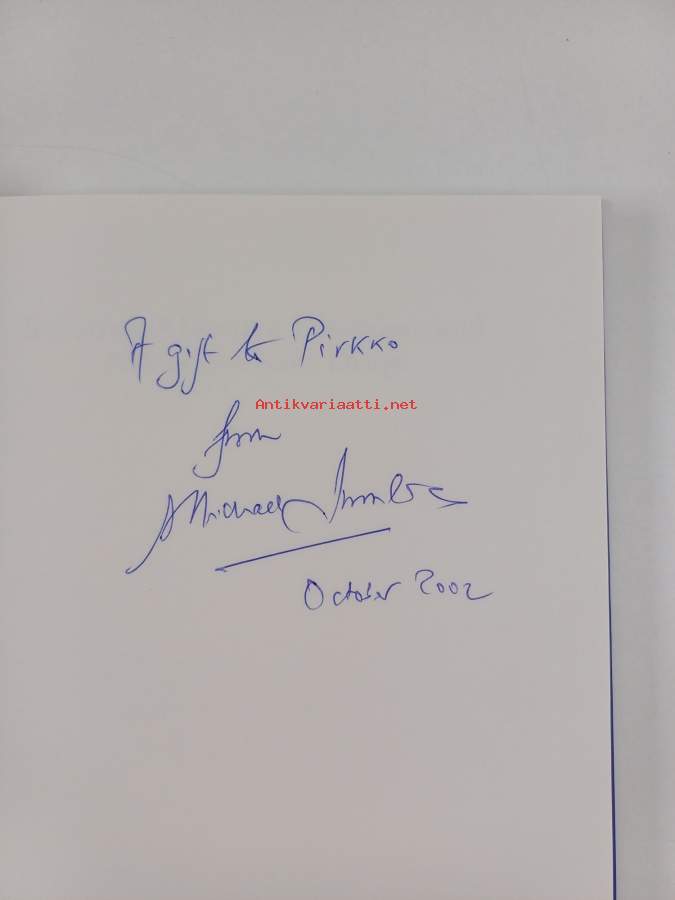 A gift to Pirkko
Antikvariaatti.net
from
Michael
October 2002